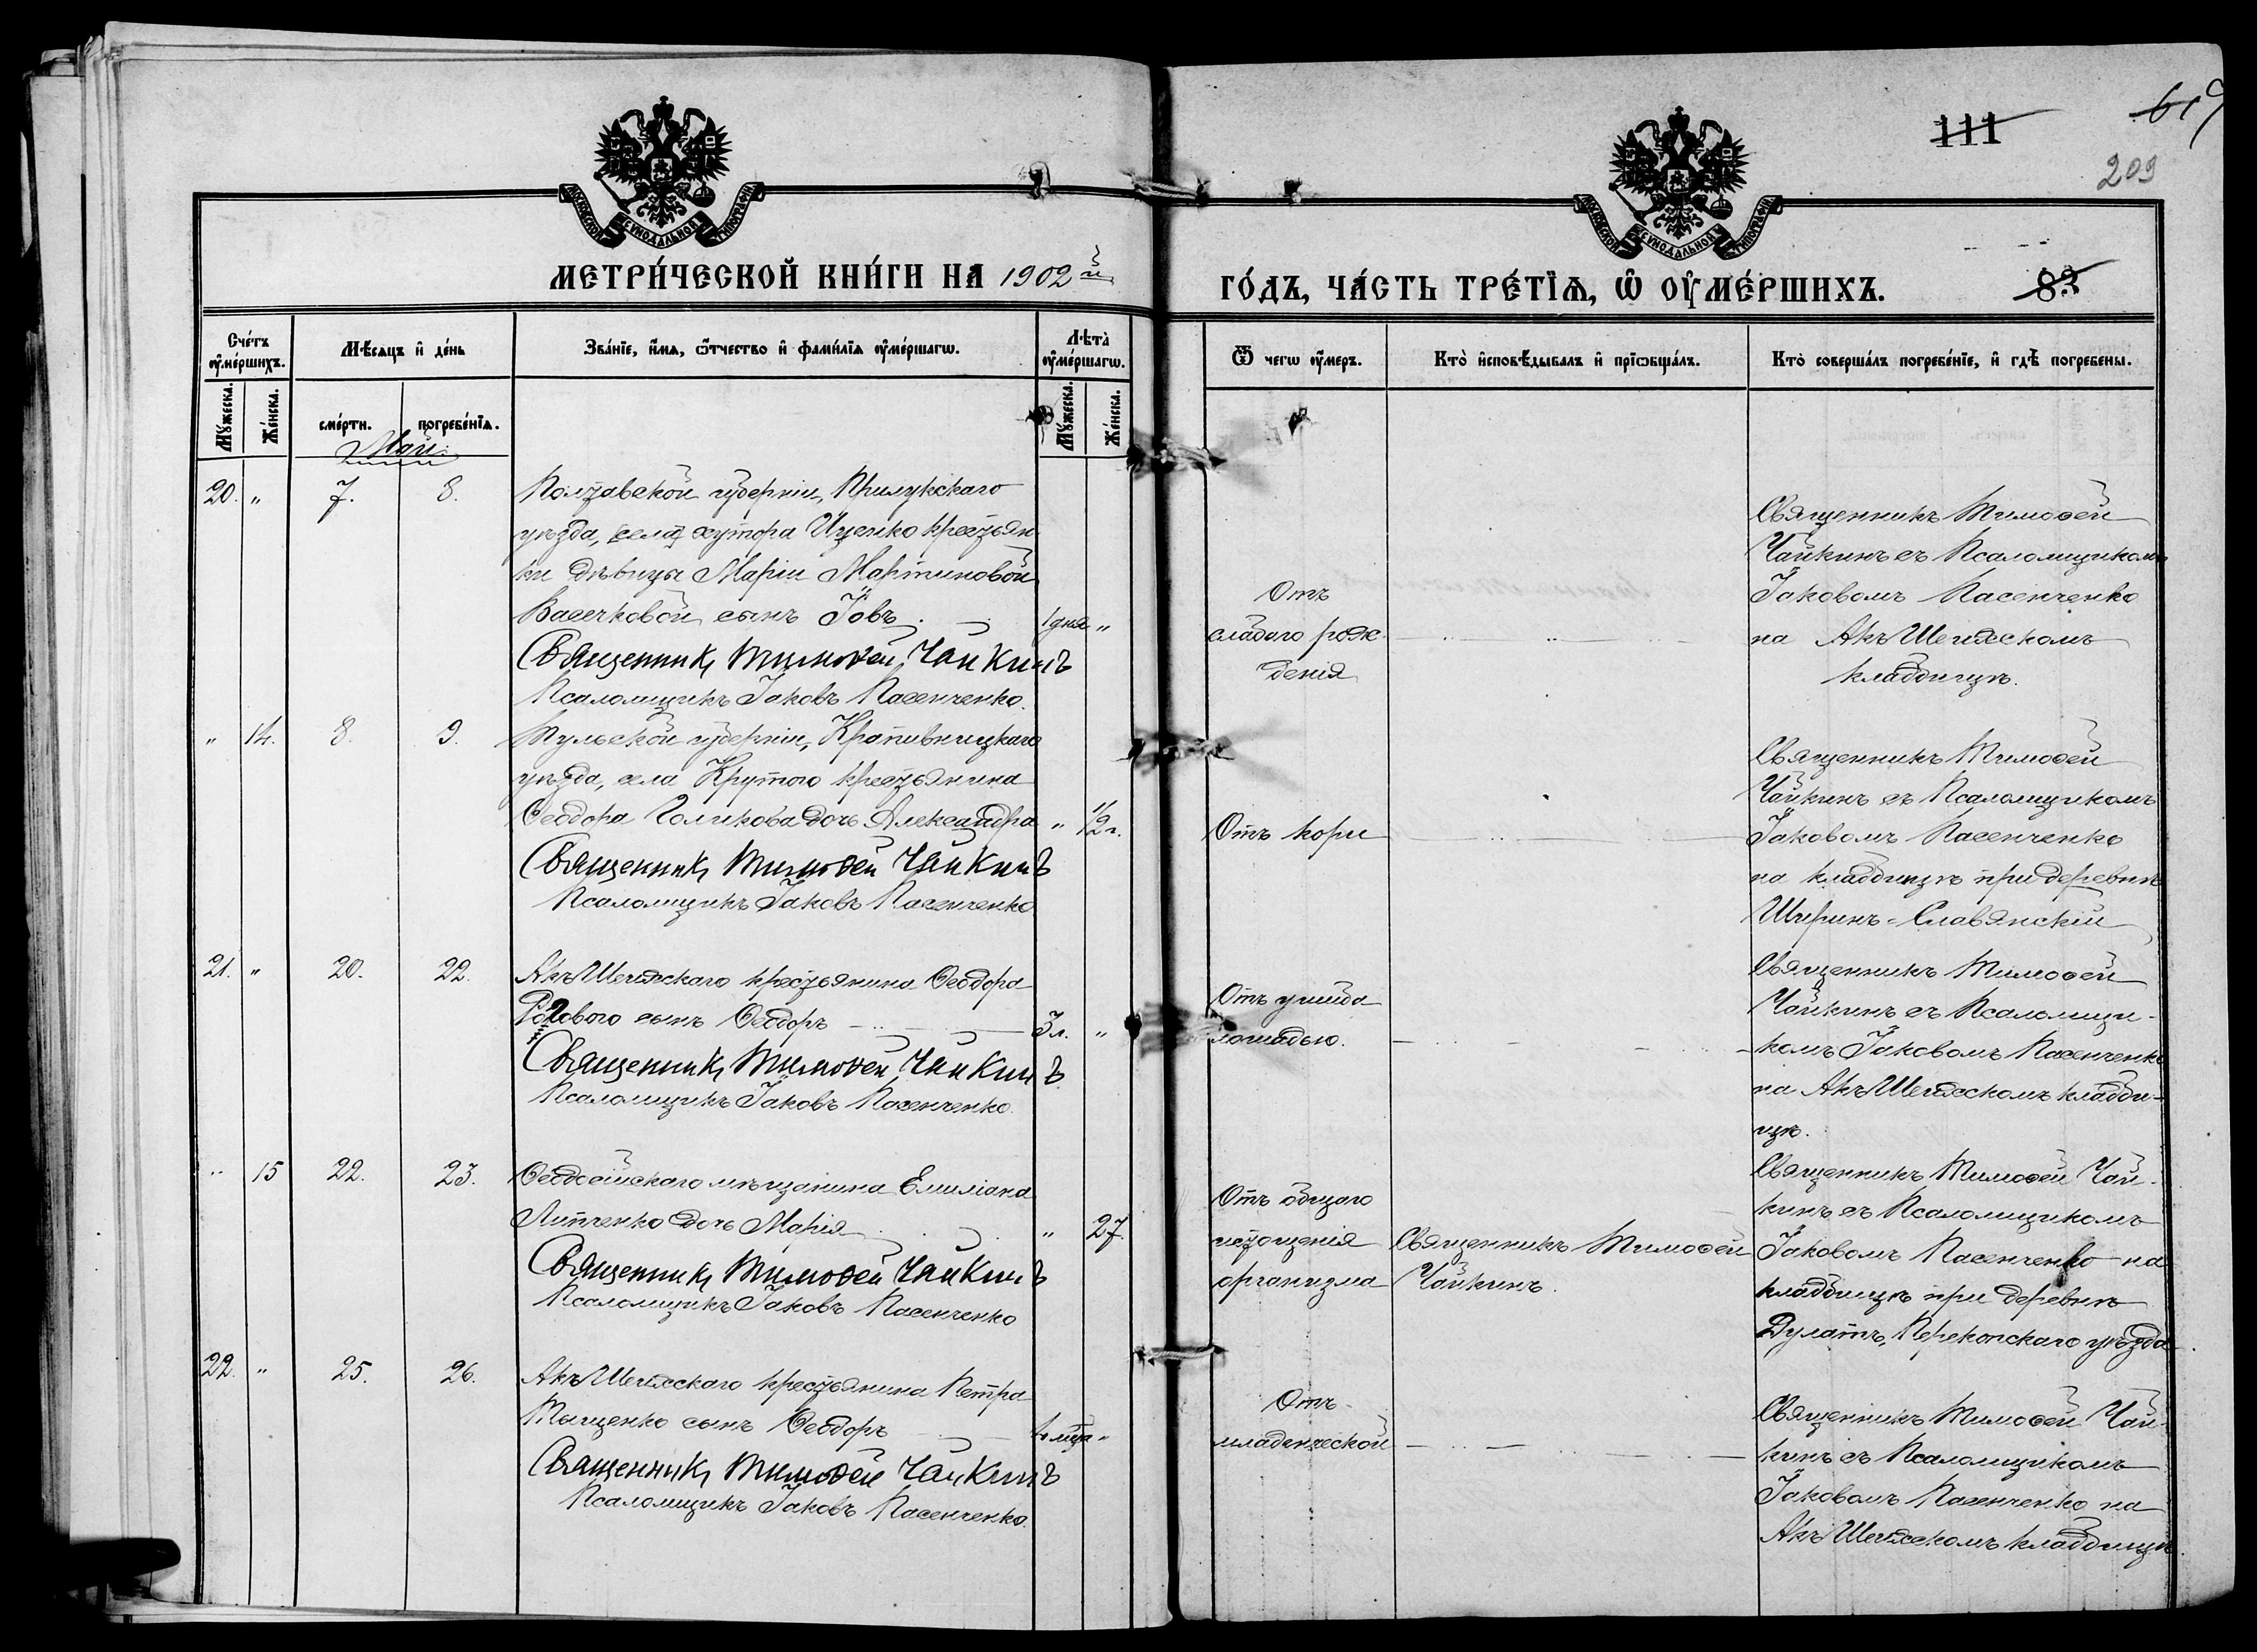 111
619
209
83
МОСКОВСКОЙ СѴНОДАЛЬНОЙ ТИПОГРАФІИ
МОСКОВСКОЙ СѴНОДАЛЬНОЙ ТИПОГРАФІИ
МЕТРИ́ЧЕСКОЙ КНИ́ГИ НА 1902й
ГО́ДЪ, ЧА́СТЬ ТРЕ́ТІѦ, Ѡ ОУ҆МЕ́РШИХЪ.
Сче́тъ оу҆ме́ршихъ.
Мѣ́сяцъ и҆ де́нь
Зва́нїе, и҆́мя, ѻ҆́тчество и҆ фами́лїя оу҆ме́ршагѡ.
Лѣ́та оу҆ме́ршагѡ.
Ѿ чегѡ̀ оу҆́меръ.
Кто̀ и҆сповѣ́дывалъ и҆ прїѡбща́лъ.
Кто̀ соверша́лъ погребе́нїе, и҆ гдѣ̀ погребены.
Му́жеска. Же́нска. сме́рти. погребе́нїя. Му́жеска. Же́нска.
Май
20. " 7. 8. Полтавской губерніи, Прилукскаго
уѣзда, села хутора Иценко крестьян-
ки дѣвицы Маріи Мартиновой
Васечковой сынъ Іовъ 1 дня "
Священникъ Тимоѳей Чайкинъ
Псаломщикъ Іаковъ Пасенченко.
Отъ
слабаго рож-
денія
Священникъ Тимоѳей
Чайкинъ съ Псаломщикомъ
Іаковомъ Пасенченко
на Акъ-Шеихскомъ
кладбищѣ.
" 14. 8. 9. Тульской губерніи, Крапивницкаго
уѣзда, села Крутого крестьянина
Ѳеодора Голикова дочь Александра " 1/2 г.
Священникъ Тимоѳей Чайкинъ
Псаломщикъ Іаковъ Пасенченко
Отъ кори
Священникъ Тимоѳей
Чайкинъ съ Псаломщикомъ
Іаковомъ Пасенченко
на кладбищѣ при деревнѣ
Ширинъ-Славянскій
21. " 20. 22. Акъ-Шеихскаго крестьянина Ѳеодора
Рогового сынъ Ѳеодоръ 3 л. "
Священникъ Тимоѳей Чайкинъ
Псаломщикъ Іаковъ Пасенченко.
Отъ ушиба
лошадью.
Священникъ Тимоѳей
Чайкинъ съ Псаломщи-
комъ Іаковомъ Пасенченко
на Акъ-Шеихскомъ кладби-
щѣ.
" 15 22. 23. Ѳеодосійскаго мѣщанина Емиліана
Литченко дочь Марія " 27.
Священникъ Тимоѳей Чайкинъ
Псаломщикъ Іаковъ Пасенченко
Отъ общаго
истощенія
организма
Священникъ Тимоѳей
Чайкинъ.
Священникъ Тимоѳей Чай-
кинъ съ Псаломщикомъ
Іаковомъ Пасенченко на
кладбищѣ при деревнѣ
Булатъ, Перекопскаго уѣзда.
22. " 25. 26. Акъ-Шеихскаго крестьянина Петра
Тыщенко сынъ Ѳеодоръ мца "
Священникъ Тимоѳей Чайкинъ
Псаломщикъ Іаковъ Пасенченко.
Отъ
младенческой
Священникъ Тимоѳей Чай-
кинъ съ Псаломщикомъ
Іаковомъ Пасенченко на
Акъ-Шеихскомъ кладбищѣ.